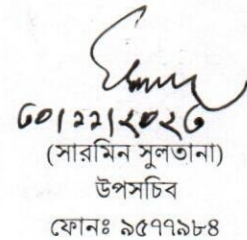 ৩০/১১/২০২৩
(সারমিন সুলতানা)
উপসচিব
ফোনঃ ৯৫৭৭৯৮৪